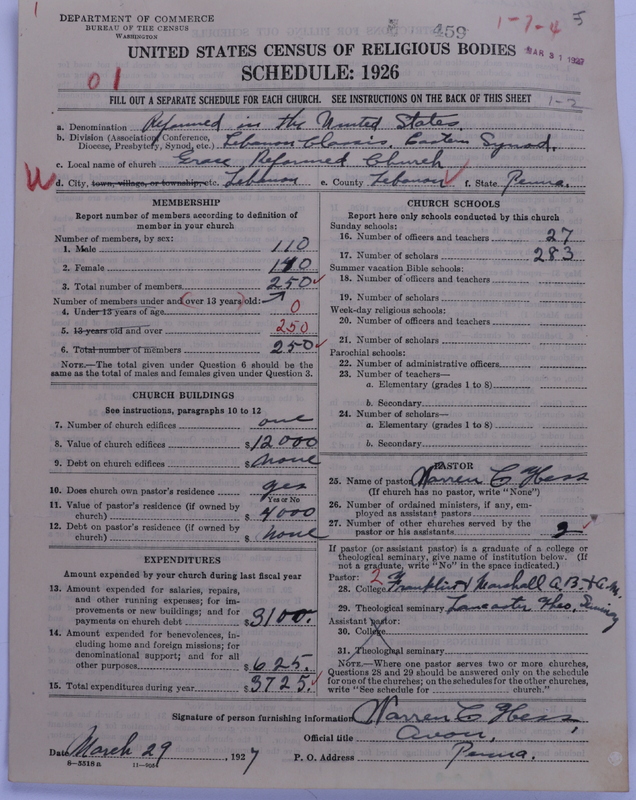 DEPARTMENT OF COMMERCE
BUREAU OF THE CENSUS
WASHINGTON
459
1-7-4 5
MAR 31 1927
UNITED STATES CENSUS OF RELIGIOUS BODIES
SCHEDULE: 1926
01
FILL OUT A SEPARATE SCHEDULE FOR EACH CHURCH. SEE INSTRUCTIONS ON THE BACK OF THIS SHEET
1-2
a. Denomination Reformed in the United States
b. Division (Association, Conference, Diocese, Presbytery, Synod, etc.) Lebanon Classis, Eastern Synod.
c. Local name of church Grace Reformed Church
d. City, town, village, or township, etc. Lebanon e. County Lebanon f. State Penna.
MEMBERSHIP
Report number of members according to definition of member in your church
Number of members, by sex:
1. Male 110
2. Female 140
3. Total number of members 250
Number of members under and over 13 years old:
4. Under 13 years of age 0
5. 13 years old and over 250
6. Total number of members 250
NOTE.—The total given under Question 6 should be the same as the total of males and females given under Question 3.
CHURCH BUILDINGS
See instructions, paragraphs 10 to 12
7. Number of church edifices one
8. Value of church edifices $12000
9. Debt on church edifices $none
10. Does church own pastor's residence yes
Yes or No
11. Value of pastor's residence (if owned by church) $4000
12. Debt on pastor's residence (if owned by church) $none
EXPENDITURES
Amount expended by your church during last fiscal year
13. Amount expended for salaries, repairs, and other running expenses; for improvements or new buildings; and for payments on church debt $3100.
14. Amount expended for benevolences, including home and foreign missions; for denominational support; and for all other purposes $625.
15. Total expenditures during year $3725.
CHURCH SCHOOLS
Report here only schools conducted by this church
Sunday schools:
16. Number of officers and teachers 27
17. Number of scholars 283
Summer vacation Bible schools:
18. Number of officers and teachers
19. Number of scholars
Week-day religious schools:
20. Number of officers and teachers
21. Number of scholars
Parochial schools:
22. Number of administrative officers
23. Number of teachers—
a. Elementary (grades 1 to 8)
b. Secondary
24. Number of scholars—
a. Elementary (grades 1 to 8)
b. Secondary
PASTOR
25. Name of pastor Warren C Hess
(If church has no pastor, write "None")
26. Number of ordained ministers, if any, employed as assistant pastors
27. Number of other churches served by the pastor or his assistants 2
If pastor (or assistant pastor) is a graduate of a college or theological seminary, give name of institution below. (If not a graduate, write "No" in the space indicated.)
Pastor: 2
28. College Franklin & Marshall A.B. & A.M.
29. Theological seminary Lancaster Theo. Seminary
Assistant pastor:
30. College
31. Theological seminary
NOTE.—Where one pastor serves two or more churches, Questions 28 and 29 should be answered only on the schedule for one of the churches; on the schedules for the other churches, write "See schedule for church."
Signature of person furnishing information Warren C Hess,
Official title Avon,
Date March 29, 1927 P. O. Address Penna.
8-5518 a 11-9054